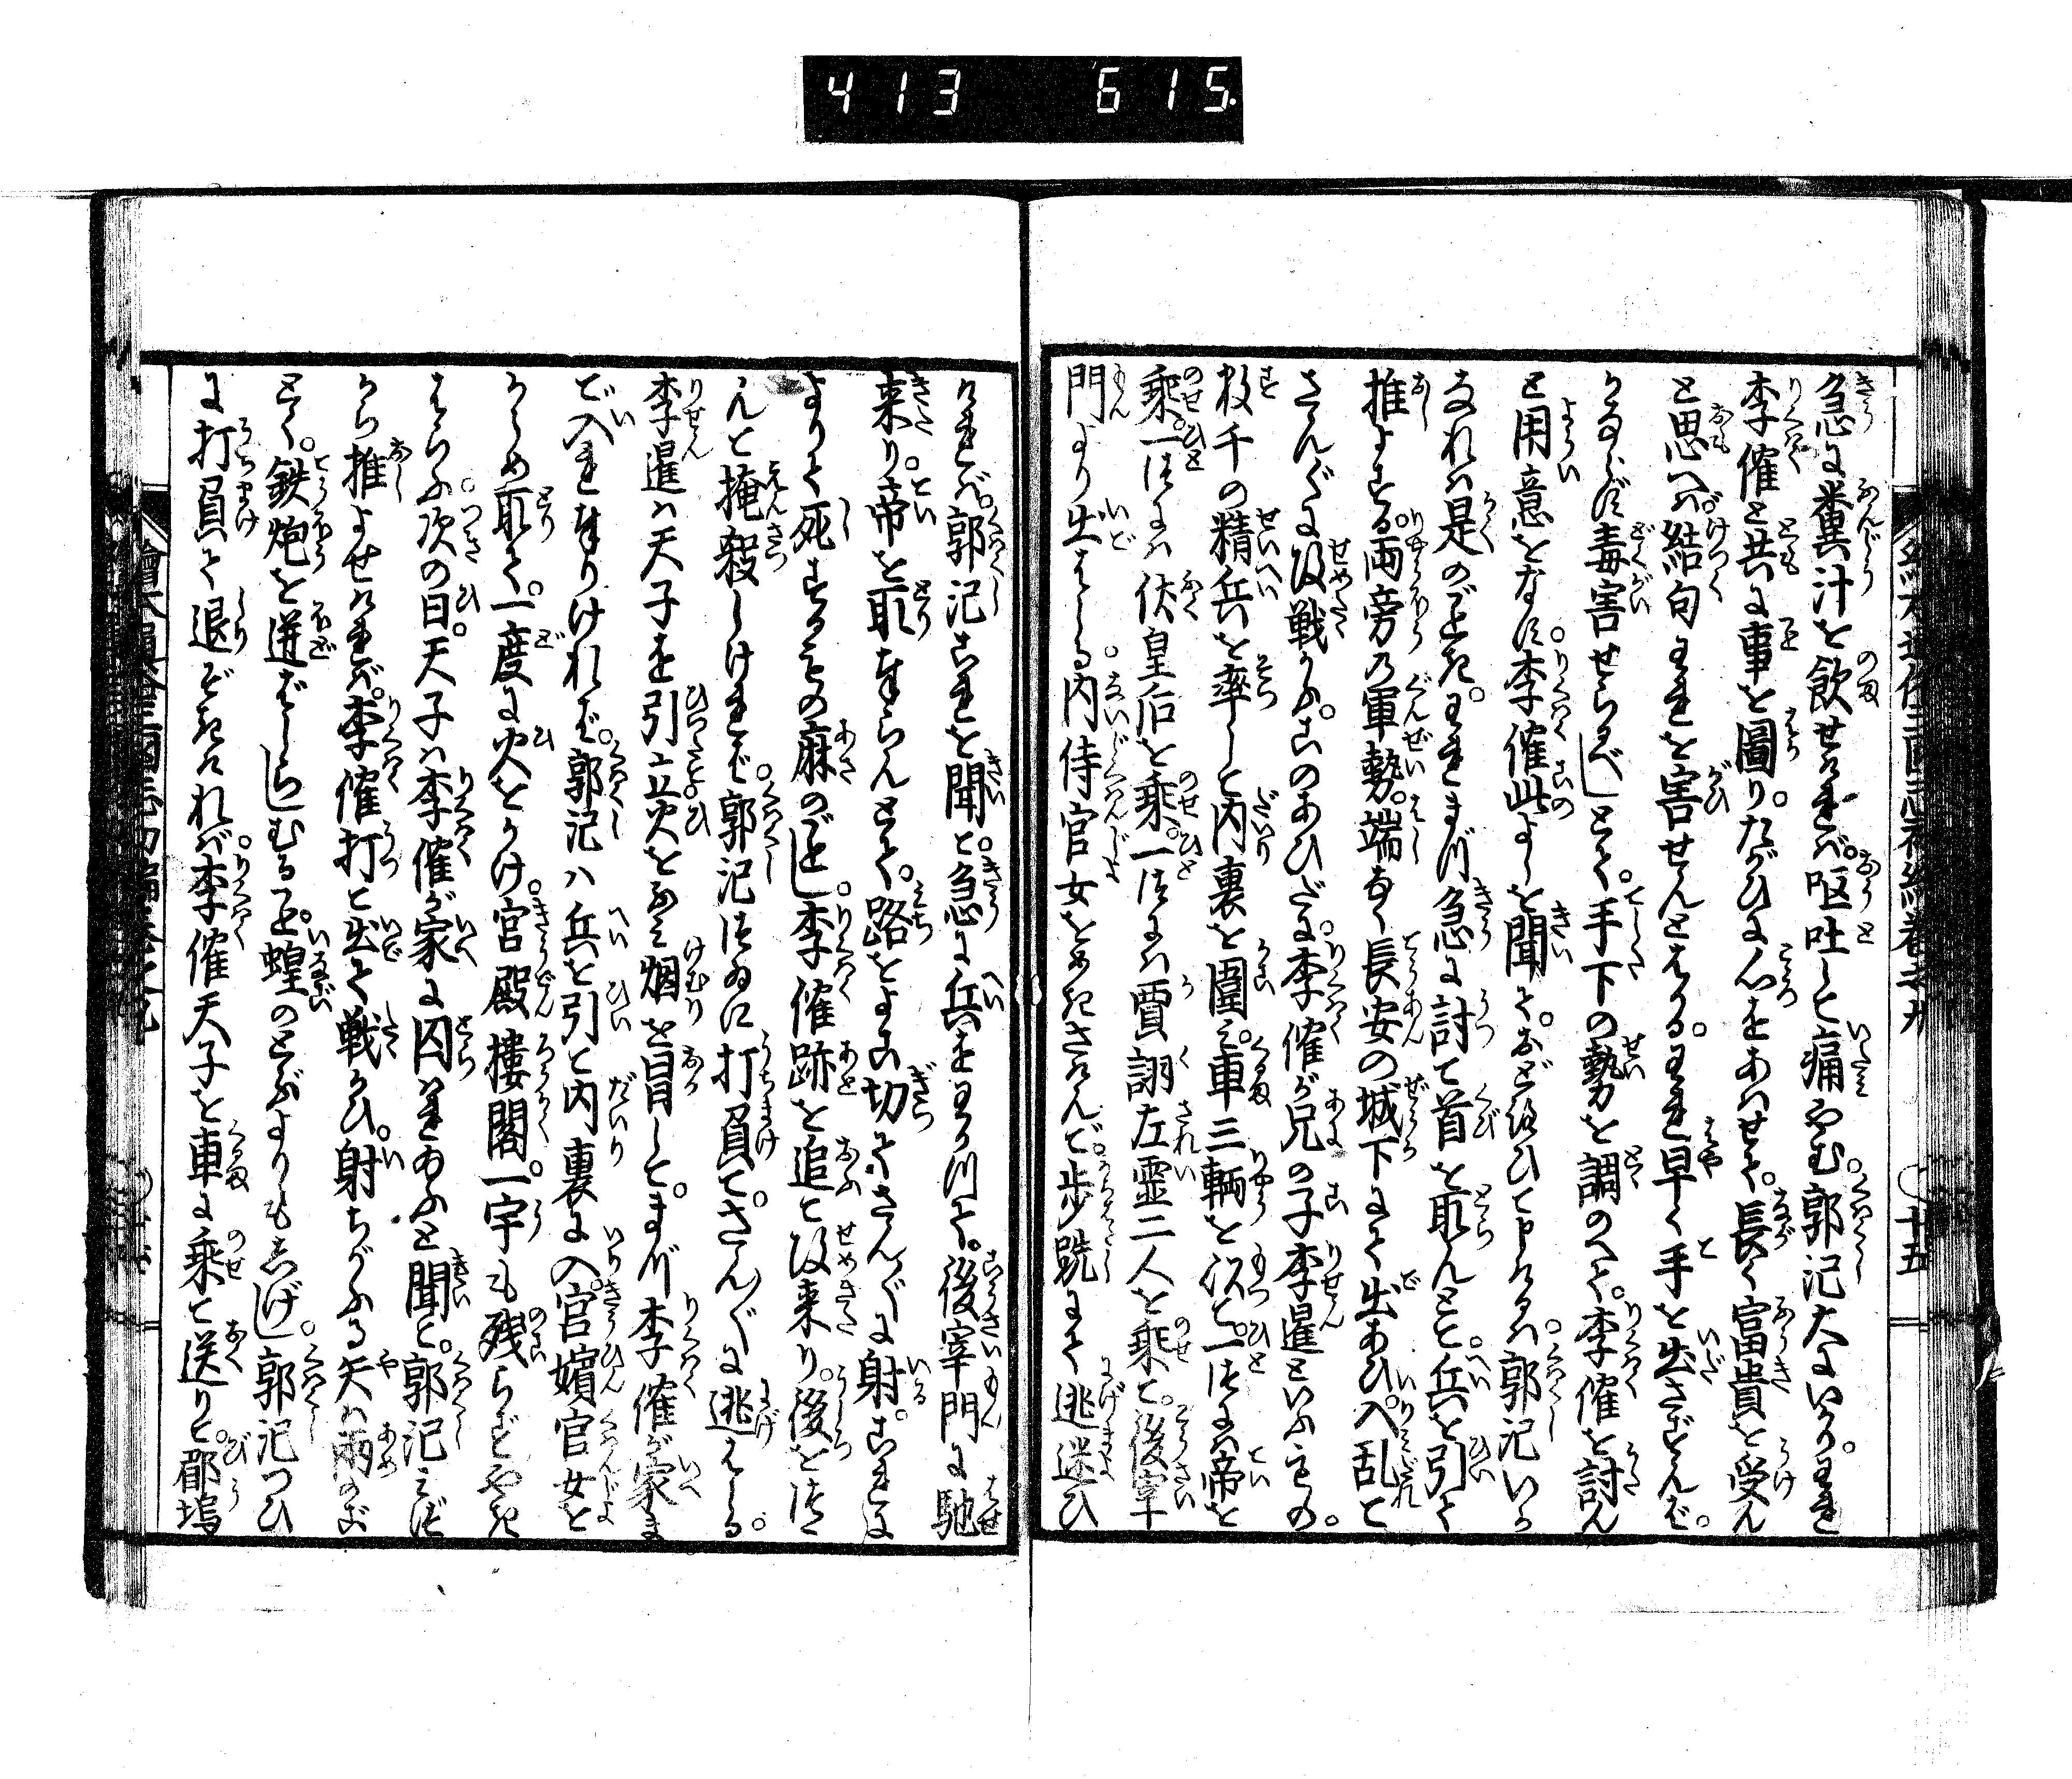 413 615.
急に糞汁を飲せければ。呕吐して痛やむ。郭汜大にいかり。われ
李傕と共に事を圖り。たがひに心をあはせて。長く富貴を受ん
と思へば結句われを害せんとはかる。われ早く手を出さずんば。
かならず毒害せらるべしとて。手下の勢を調のへて。李傕を討ん
と用意をなす。李傕此よしを聞て。おどろひて申けるは。郭汜いか
なれは是のごときわれまづ急に討て首を取んとて。兵を引て
推よする。両旁の軍勢。端なく長安の城下にて出あひ。入乱て
さんぐに攻戦かふ。このあひだに。李傕が兄の子李暹といふもの。
数千の精兵を率して内裏を圍み。車三輌を以て。一ツには帝を
乗。一ツには伏皇后を乗。一ツには賈詡左霊二人を乗て。後宰
門より出はしる。内侍官女をめきさけんで。歩跣にて逃迷ひ
ければ。郭汜これを聞て。急に兵をわかつて。後宰門に馳
来り。帝を取奉らんとて。路をよこ切てさんぐに射。これに
よりて死するもの麻のごとし。李傕跡を追て攻来り。後をつゝ
んと掩殺しければ。郭汜つゐに打負て。さんぐに逃はしる。
李暹は天子を引立火をふみ烟を冒して。まづ李傕が家ま
で入れ奉りければ。郭汜ハ兵を引て内裏に入。官嬪官女を
からめ取て。一度に火をかけ。宮殿樓閣。一宇も残らずやき
はらふ。次の日。天子は李傕が家に囚れ玉ふと聞て。郭汜みづ
から推よせければ。李傕打て出て戦かひ。射ちがふる矢は雨のごと
とく。鉄炮を迸ばしらしむる事。蝗のとぶよりもしげし。郭汜つひ
に打負て退ぞきければ。李傕天子を車に乗て送りて。郿塢